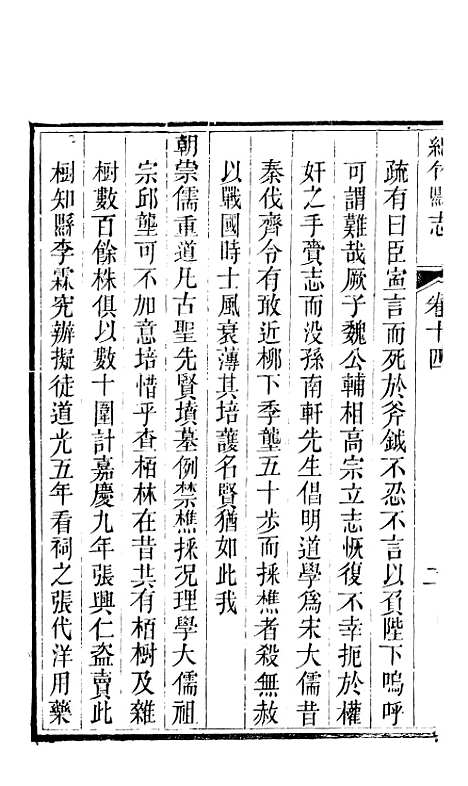 綿竹縣志 卷十四 二
疏有曰臣寧言而死於斧鉞不忍不言以負陛下嗚呼
可謂難哉厥子魏公輔相高宗立志恢復不幸扼於權
奸之手賫志而没孫南軒先生倡明道學為宋大儒昔
秦伐齊令有敢近柳下季壟五十步而採樵者殺無赦
以戰國時士風衰薄其培護名賢猶如此我
朝崇儒重道凡古聖先賢墳墓例禁樵採况理學大儒祖
宗邱壟可不加意培惜乎查栢林在昔共有栢樹及雜
樹數百餘株俱以數十圍計嘉慶九年張興仁盗賣此
樹知縣李霖究辦擬徒道光五年看祠之張代洋用藥